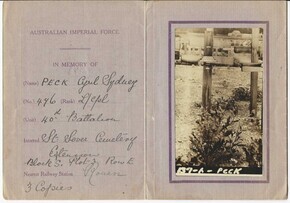 AUSTRALIAN IMPERIAL FORCE
IN MEMORY OF
(Name) PECK Cyril Sydney
(No.) 496 (Rank) L/Cpl
(Unit) 40th Battalion
Located St Sever Cemetery
Extension
Block S. Plot J. Row E
Nearest Railway Station Rouen
3 Copies
PECK